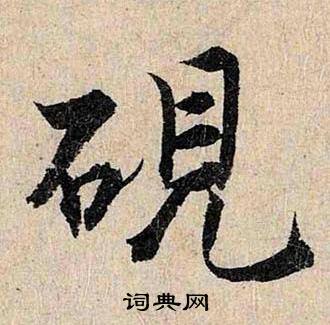 硯
词典网